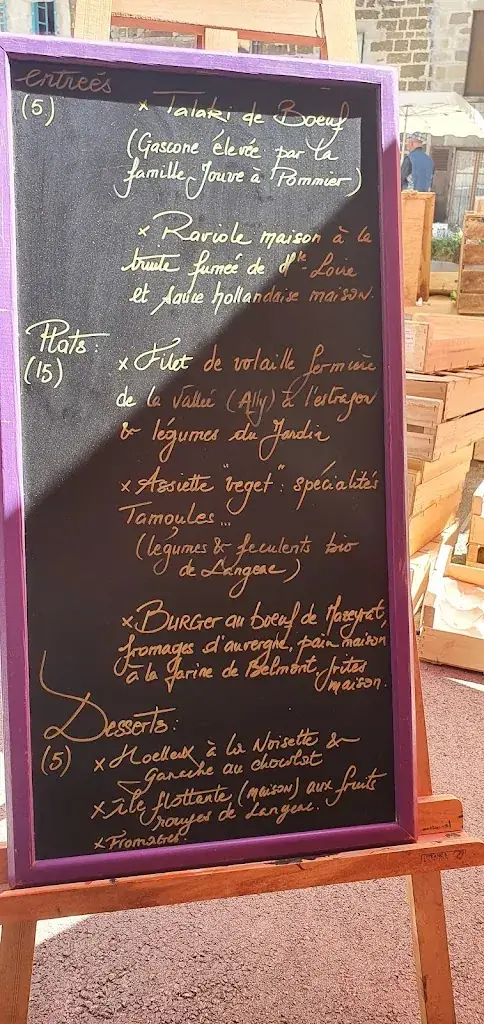 entrées
(5)
× Tataki de Boeuf
(Gascone élevée par la
famille Jouve à Pommier)
× Raviole maison à la
truite fumée de Hte-Loire
et sauce hollandaise maison.
Plats :
(15)
× Filet de volaille fermière
de la Vallée (Ally) à l'estragon
& légumes du Jardin
× Assiette "veget" : spécialités
Tamoules...
(légumes & feculents bio
de Langeac)
× BURGER au boeuf de Mazeyrat,
fromages d'auvergne, pain maison
à la farine de Belmont, frites
maison.
Desserts :
(5)
× Moelleux à la Noisette &
ganache au chocolat
× île flottante (maison) aux fruits
rouges de Langeac.
× Fromages.